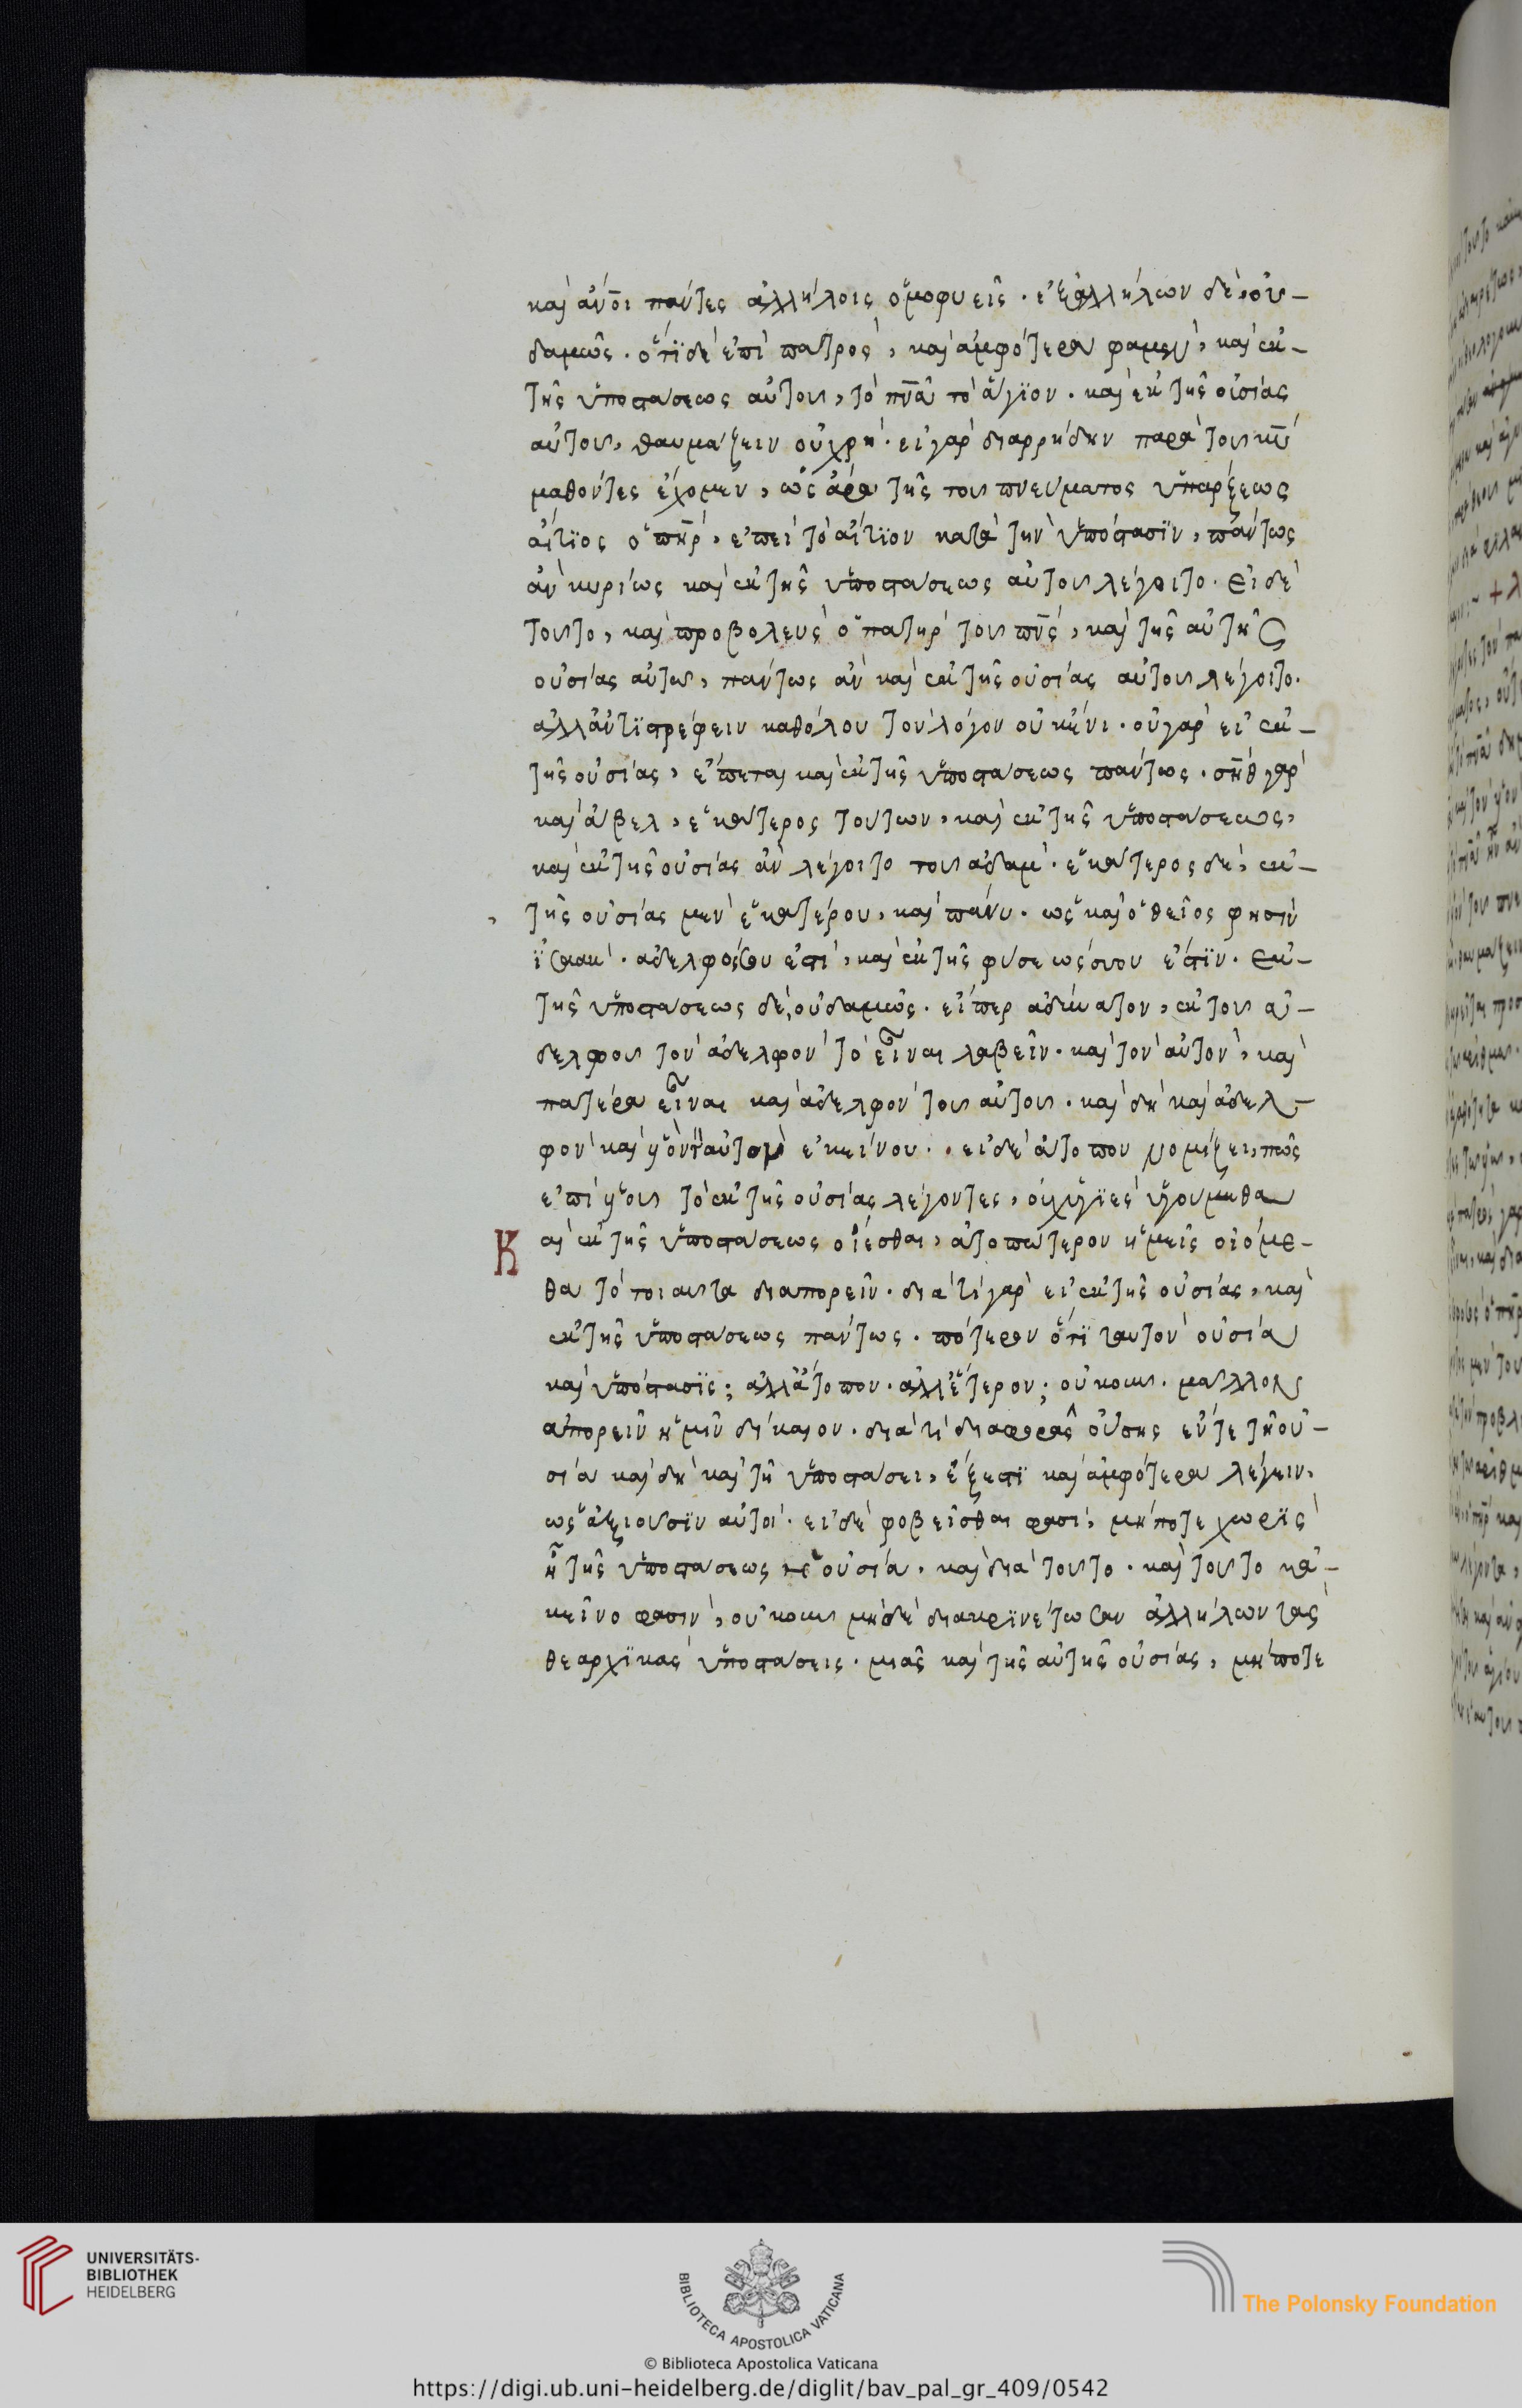 καὶ ἄνοι πάντες ἀλλήλοις ὁμοφυεῖς. ἐξ ἀλλήλων δὲ, οὐ-
δαμῶς. ὅτι δὲ ἐπὶ πατρὸς, καὶ ἀμφότερα φαμὲν, καὶ ἐκ
τῆς ὑποστάσεως αὐτοῦ, τὸ πνᾶ τὸ ἅγιον. καὶ ἐκ τῆς οὐσίας
αὐτοῦ, θαυμάζειν οὐ χρή. εἰ γὰρ διαρρήδην παρὰ τοῦ κῡ
μαθόντες ἔχομεν, ὡς ἄρα τῆς τοῦ πνεύματος ὑπάρξεως
αἴτιος ὁ πηρ, ἐπεὶ τὸ αἴτιον κατὰ τὴν ὑπόστασιν, πάντως
ἂν κυρίως καὶ ἐκ τῆς ὑποστάσεως αὐτοῦ λέγοιτο. εἰ δὲ
τοῦτο, καὶ προβολεὺς ὁ πατὴρ τοῦ πνς, καὶ τῆς αὐτῆς
οὐσίας αὐτῶ, πάντως ἂν καὶ ἐκ τῆς οὐσίας αὐτοῦ λέγοιτο.
ἀλλ' ἀντιστρέφειν καθόλου τὸν λόγον οὐκ ἔνι. οὐ γὰρ εἰ ἐκ
τῆς οὐσίας, ἕπεται καὶ ἐκ τῆς ὑποστάσεως πάντως. σὴθ γὰρ
καὶ ἄβελ, ἑκάτερος τούτων, καὶ ἐκ τῆς ὑποστάσεως,
καὶ ἐκ τῆς οὐσίας ἂν λέγοιτο τοῦ ἀδάμ. ἑκάτερος δὲ, ἐκ
τῆς οὐσίας μὲν ἑκατέρου, καὶ πάνυ. ὡς καὶ ὁ θεῖος φησὶν
ἰσαάκ. ἀδελφός σου ἐστὶ, καὶ ἐκ τῆς φύσεώς σου ἐστίν. ἐκ
τῆς ὑποστάσεως δὲ, οὐδαμῶς. εἴπερ ἀδύνατον, ἐκ τοῦ ἀ-
δελφοῦ τὸν ἀδελφὸν τὸ εἶναι λαβεῖν. καὶ τὸν αὐτὸν, καὶ
πατέρα εἶναι καὶ ἀδελφὸν τοῦ αὐτοῦ. καὶ δὴ καὶ ἀδελ-
φὸν καὶ υἱὸν τ' αὐτὸν ἐκείνου. εἰ δὲ ἄτοπον νομίζει, πῶς
ἐπὶ υἱοῦ τὸ ἐκ τῆς οὐσίας λέγοντες, οὐχ ὑγιὲς ἡγούμεθα
Καὶ ἐκ τῆς ὑποστάσεως οἴεσθαι, ἀτοπώτερον ἡμεῖς οἰόμε-
θα τὸ τοιαῦτα διαπορεῖν. διατί γὰρ εἰ ἐκ τῆς οὐσίας, καὶ
ἐκ τῆς ὑποστάσεως πάντως. πότερον ὅτι ταυτὸν οὐσία
καὶ ὑπόστασις; ἀλλ' ἄτοπον. ἀλλ' ἕτερον; οὐκοῦν. μᾶλλον
ἀπορεῖν ἡμῖν δίκαιον. διατί διαφορᾶς οὔσης ἔν τε τῆ οὐ-
σία καὶ δὴ καὶ τῆ ὑποστάσει, ἔξεστι καὶ ἀμφότερα λέγειν,
ὡς ἀξιοῦσιν αὐτοὶ. εἰ δὲ φοβεῖσθαι φασὶ, μήποτε χωρὶς
ἦ τῆς ὑποστάσεως ἡ οὐσία, καὶ διὰ τοῦτο. καὶ τοῦτο κἀ-
κεῖνο φασὶν, οὐκοῦν μηδὲ διακρινέτωσαν ἀλλήλων τὰς
θεαρχικὰς ὑποστάσεις. μιᾶς καὶ τῆς αὐτῆς οὐσίας, μήποτε
UNIVERSITÄTS-
BIBLIOTHEK
HEIDELBERG
BIBLIOTECA APOSTOLICA VATICANA
The Polonsky Foundation
© Biblioteca Apostolica Vaticana
https://digi.ub.uni-heidelberg.de/diglit/bav_pal_gr_409/0542